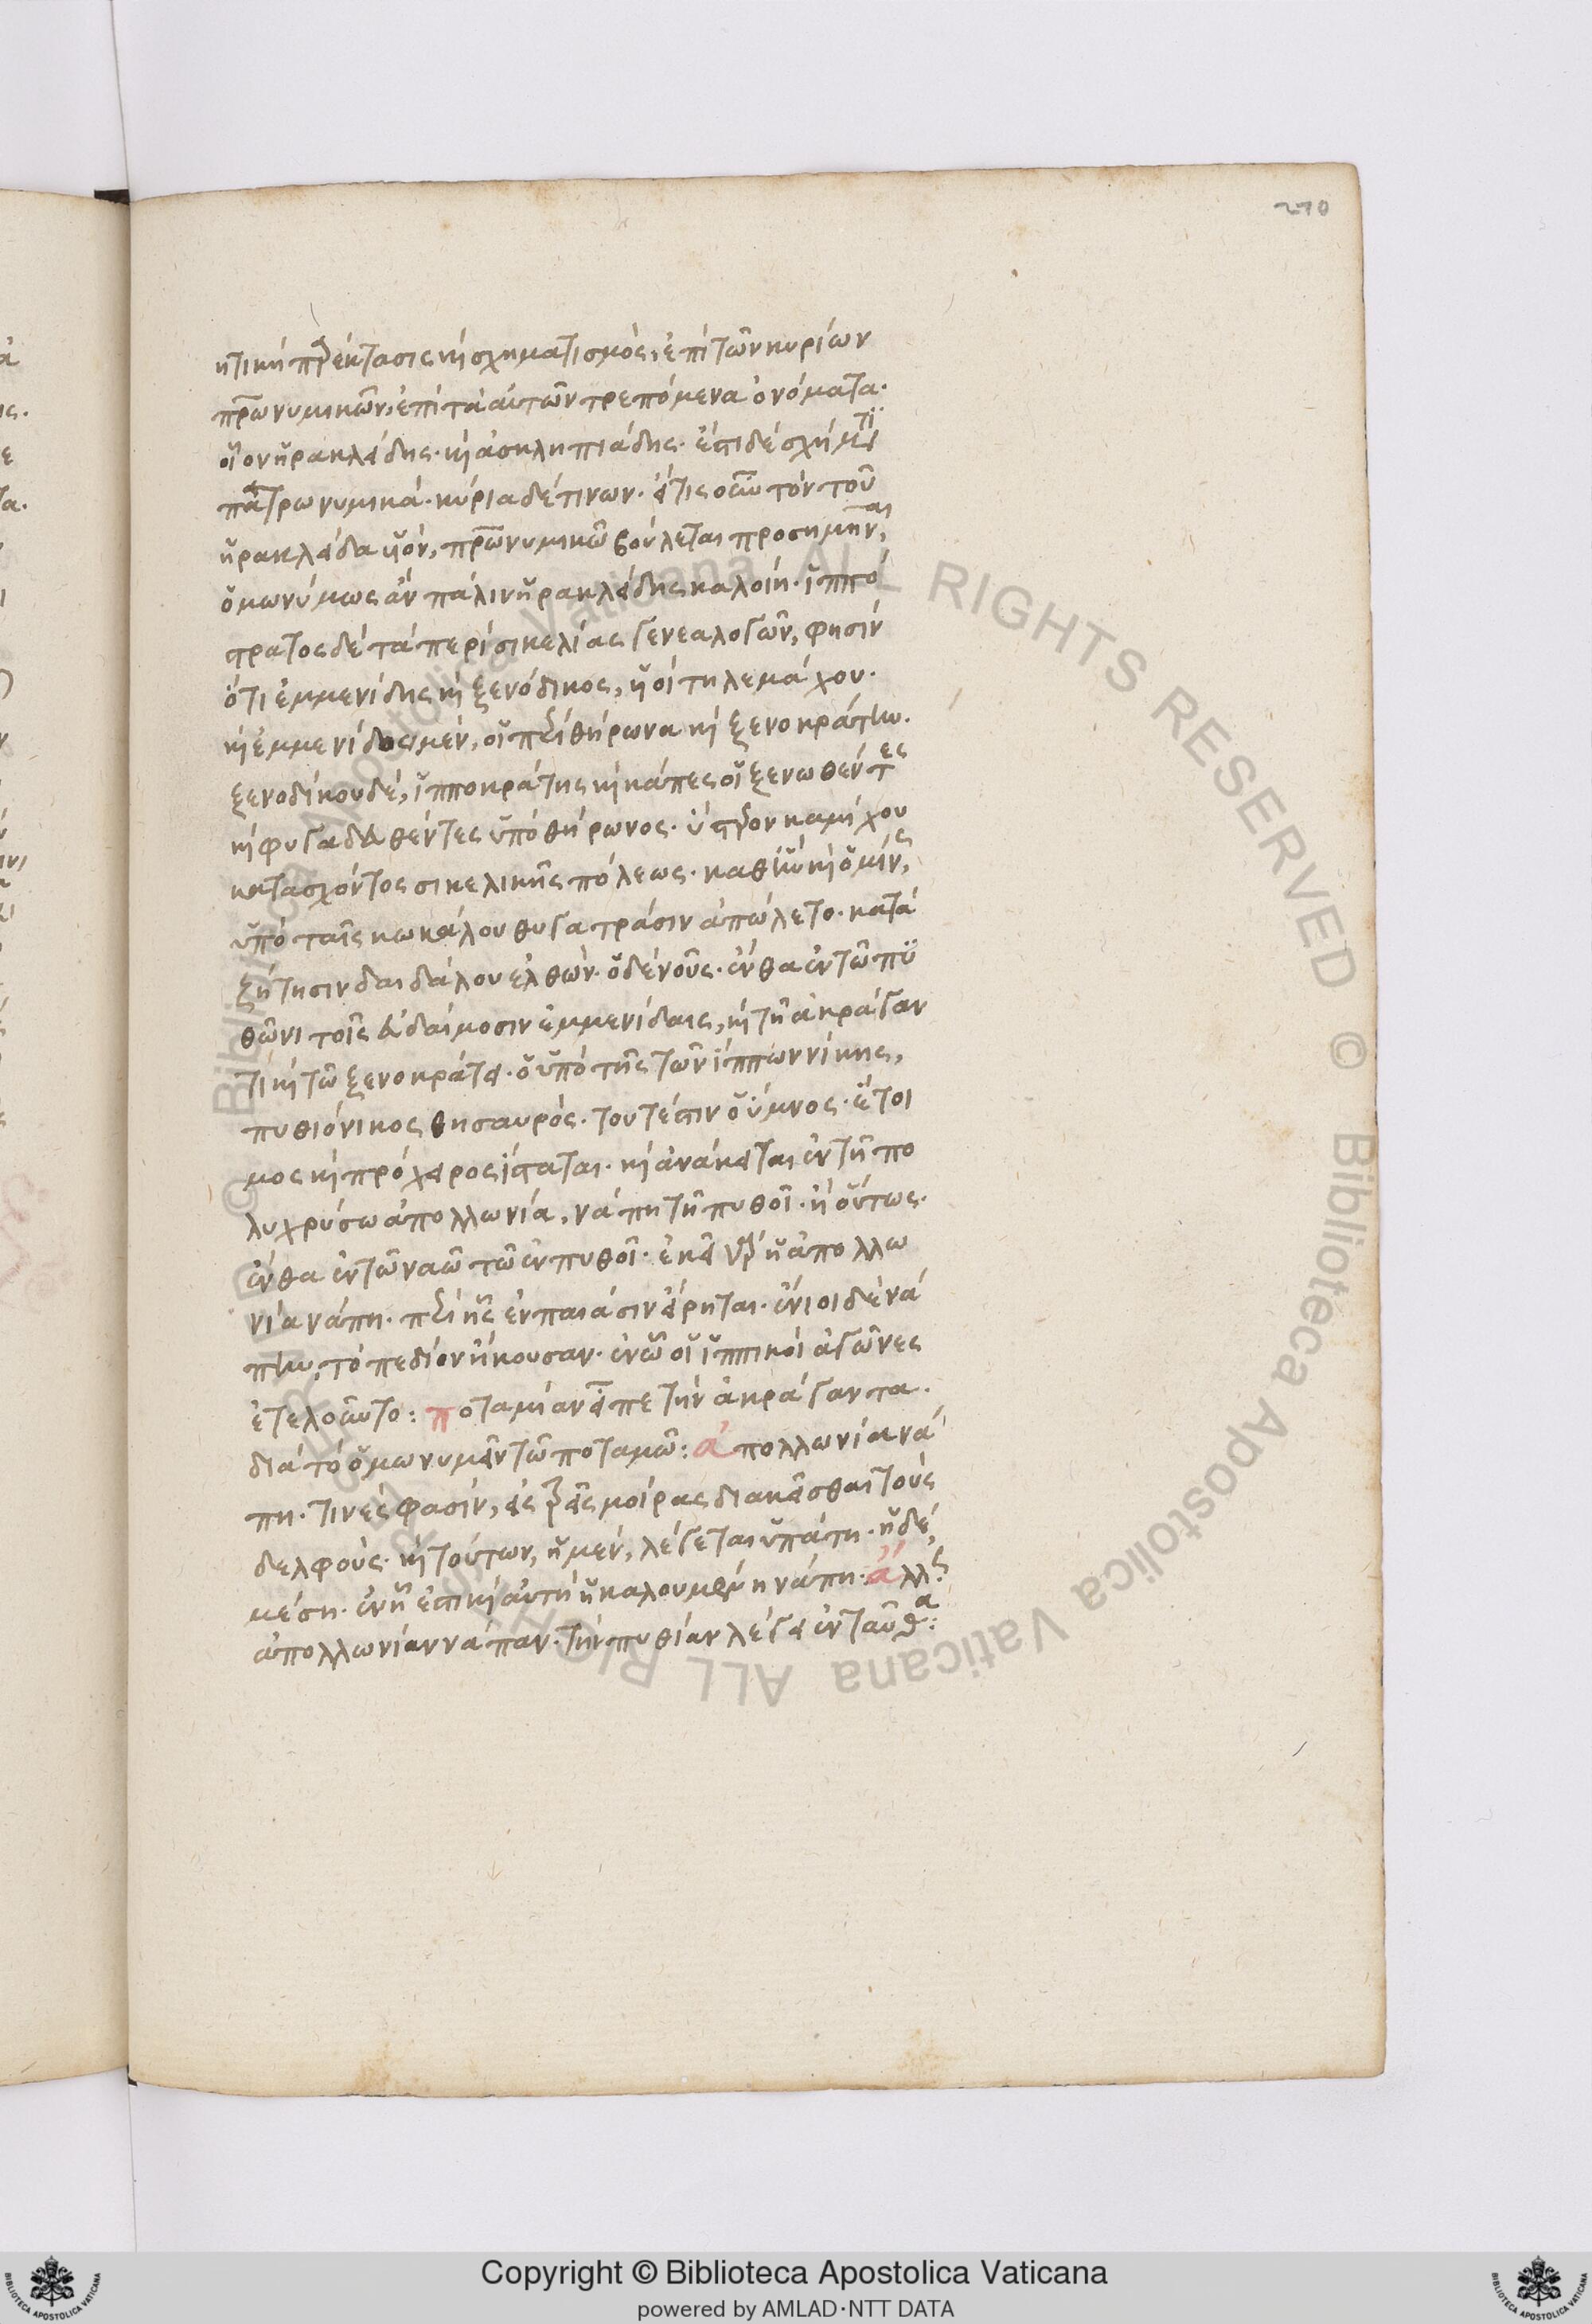 270
ητικὴ πρέκτασις κὶ σχηματισμὸς, ἐπὶ τῶν κυρίων
πρωνυμικῶν, ἐπὶ τὰ αὐτῶν τρεπόμενα ὀνόματα.
οἷον ἡρακλείδης. κὶ ἀσκληπιάδης. ἐστὶ δὲ σχήματι
πατρωνυμικά. κύρια δέ τινων. εἴ τις οὖν τὸν τοῦ
ἡρακλείδα υἱὸν, πρωνυμικῶ βούλεται προσημῆναι,
ὁμωνύμως ἂν πάλιν ἡρακλείδης καλοίη. ἱππό
στρατος δὲ τὰ περὶ σικελίας γενεαλογῶν, φησὶν
ὅτι ἐμμενίδης κὶ ξενόδικος, υἱοὶ τηλεμάχου.
κὶ ἐμμενίδος μέν, οἱ περὶ θήρωνα κὶ ξενοκράτην.
ξενοδίκου δέ, ἱπποκράτης κὶ κάπες οἱ ξενωθέντες
κὶ φυγαδευθέντες ὑπὸ θήρωνος. ὕστερον καμίχου
κατασχόντος σικελικῆς πόλεως. καθ' ἣν κὶ ὁ μίνως,
ὑπὸ ταῖς κωκάλου θυγατράσιν ἀπώλετο. κατὰ
ζήτησιν δαιδάλου ἐλθών. ὁ δὲ νοῦς. ἔνθα ἐν τῶ πυ
θῶνι τοῖς εὐδαίμοσιν ἐμμενίδαις, κὶ τῆ ἀκράγαν
τι κὶ τῶ ξενοκράτει. ὁ ὑπὸ τῆς τῶν ἵππων νίκης,
πυθιόνικος θησαυρός. τουτέστιν ὁ ὕμνος. ἕτοι
μος κὶ πρόχειρος ἵσταται. κὶ ἀνάκειται ἐν τῆ πο
λυχρύσω ἀπολλωνία, νάπη τῆ πυθοῖ. ἢ οὕτως.
ἔνθα ἐν τῶ ναῶ τῶ ἐν πυθοῖ. ἐκεῖ γὰρ ἡ ἀπολλω
νία νάπη. περὶ ἧς ἐν παιᾶσιν εἴρηται. ἔνιοι δὲ νά
πην, τὸ πεδίον ἤκουσαν. ἐν ὧ οἱ ἱππικοὶ ἀγῶνες
ἐτελοῦντο: ποταμίαν εἶπε τὴν ἀκράγαντα.
διὰ τὸ ὁμωνυμεῖν τῶ ποταμῶ: ἀπολλωνία νά
πη. τινές φασὶν, εἰς τρεῖς μοίρας διακεῖσθαι τοὺς
δελφούς. κὶ τούτων, ἡ μέν, λέγεται ὑπάτη. ἡ δέ,
μέση. ἐν ἧ ἐστι κὶ αὐτὴ ἡ καλουμένη νάπη. ἄλλως
ἀπολλωνίαν νάπαν. τὴν πυθίαν λέγει ἐνταῦθα:
Copyright © Biblioteca Apostolica Vaticana
powered by AMLAD·NTT DATA